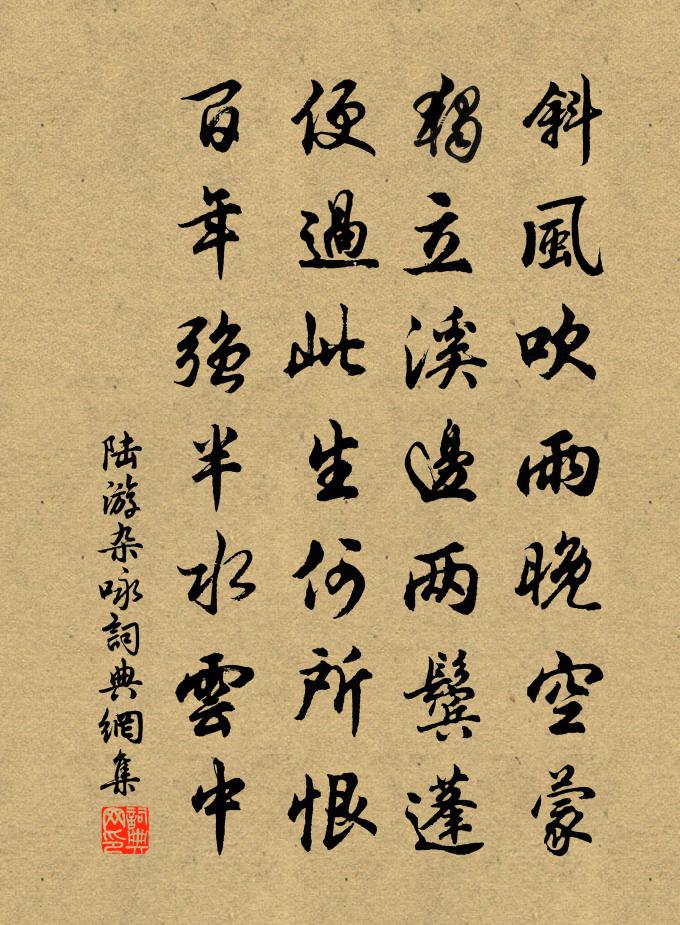 斜風吹雨晚空蒙
獨立溪邊兩鬢蓬
便過此生何所恨
百年強半水雲中
陆游杂咏詞典網集
詞典網印